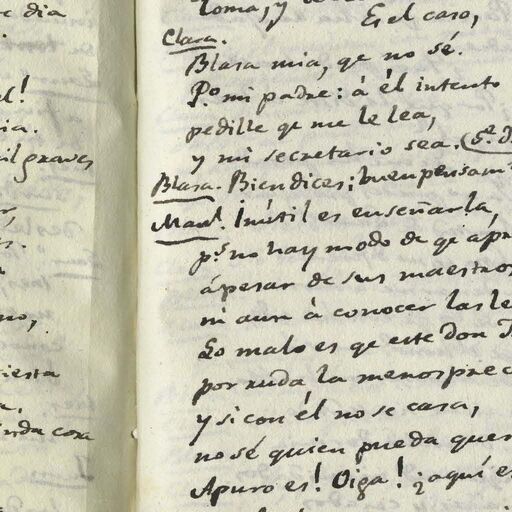 e dia
el!
ia.
mil graves
no,
iesta
a.
toma, y
Es el caso,
Clara.
Blasa mia, qe no sé.
Po. mi padre: á él intento
pedille qe me le lea,
y mi secretario sea.
Blasa. Bien dices; buen pensam
Manl. Inútil es enseñarla,
ps. no hay modo de qe apr
ápesar de sus maestros
ni aun á conocer las le
Lo malo es qe este Don
por ruda la menosprec
y si con él no se casa,
no sé quien pueda quer
Apuro es! Oiga! ¿aquí es